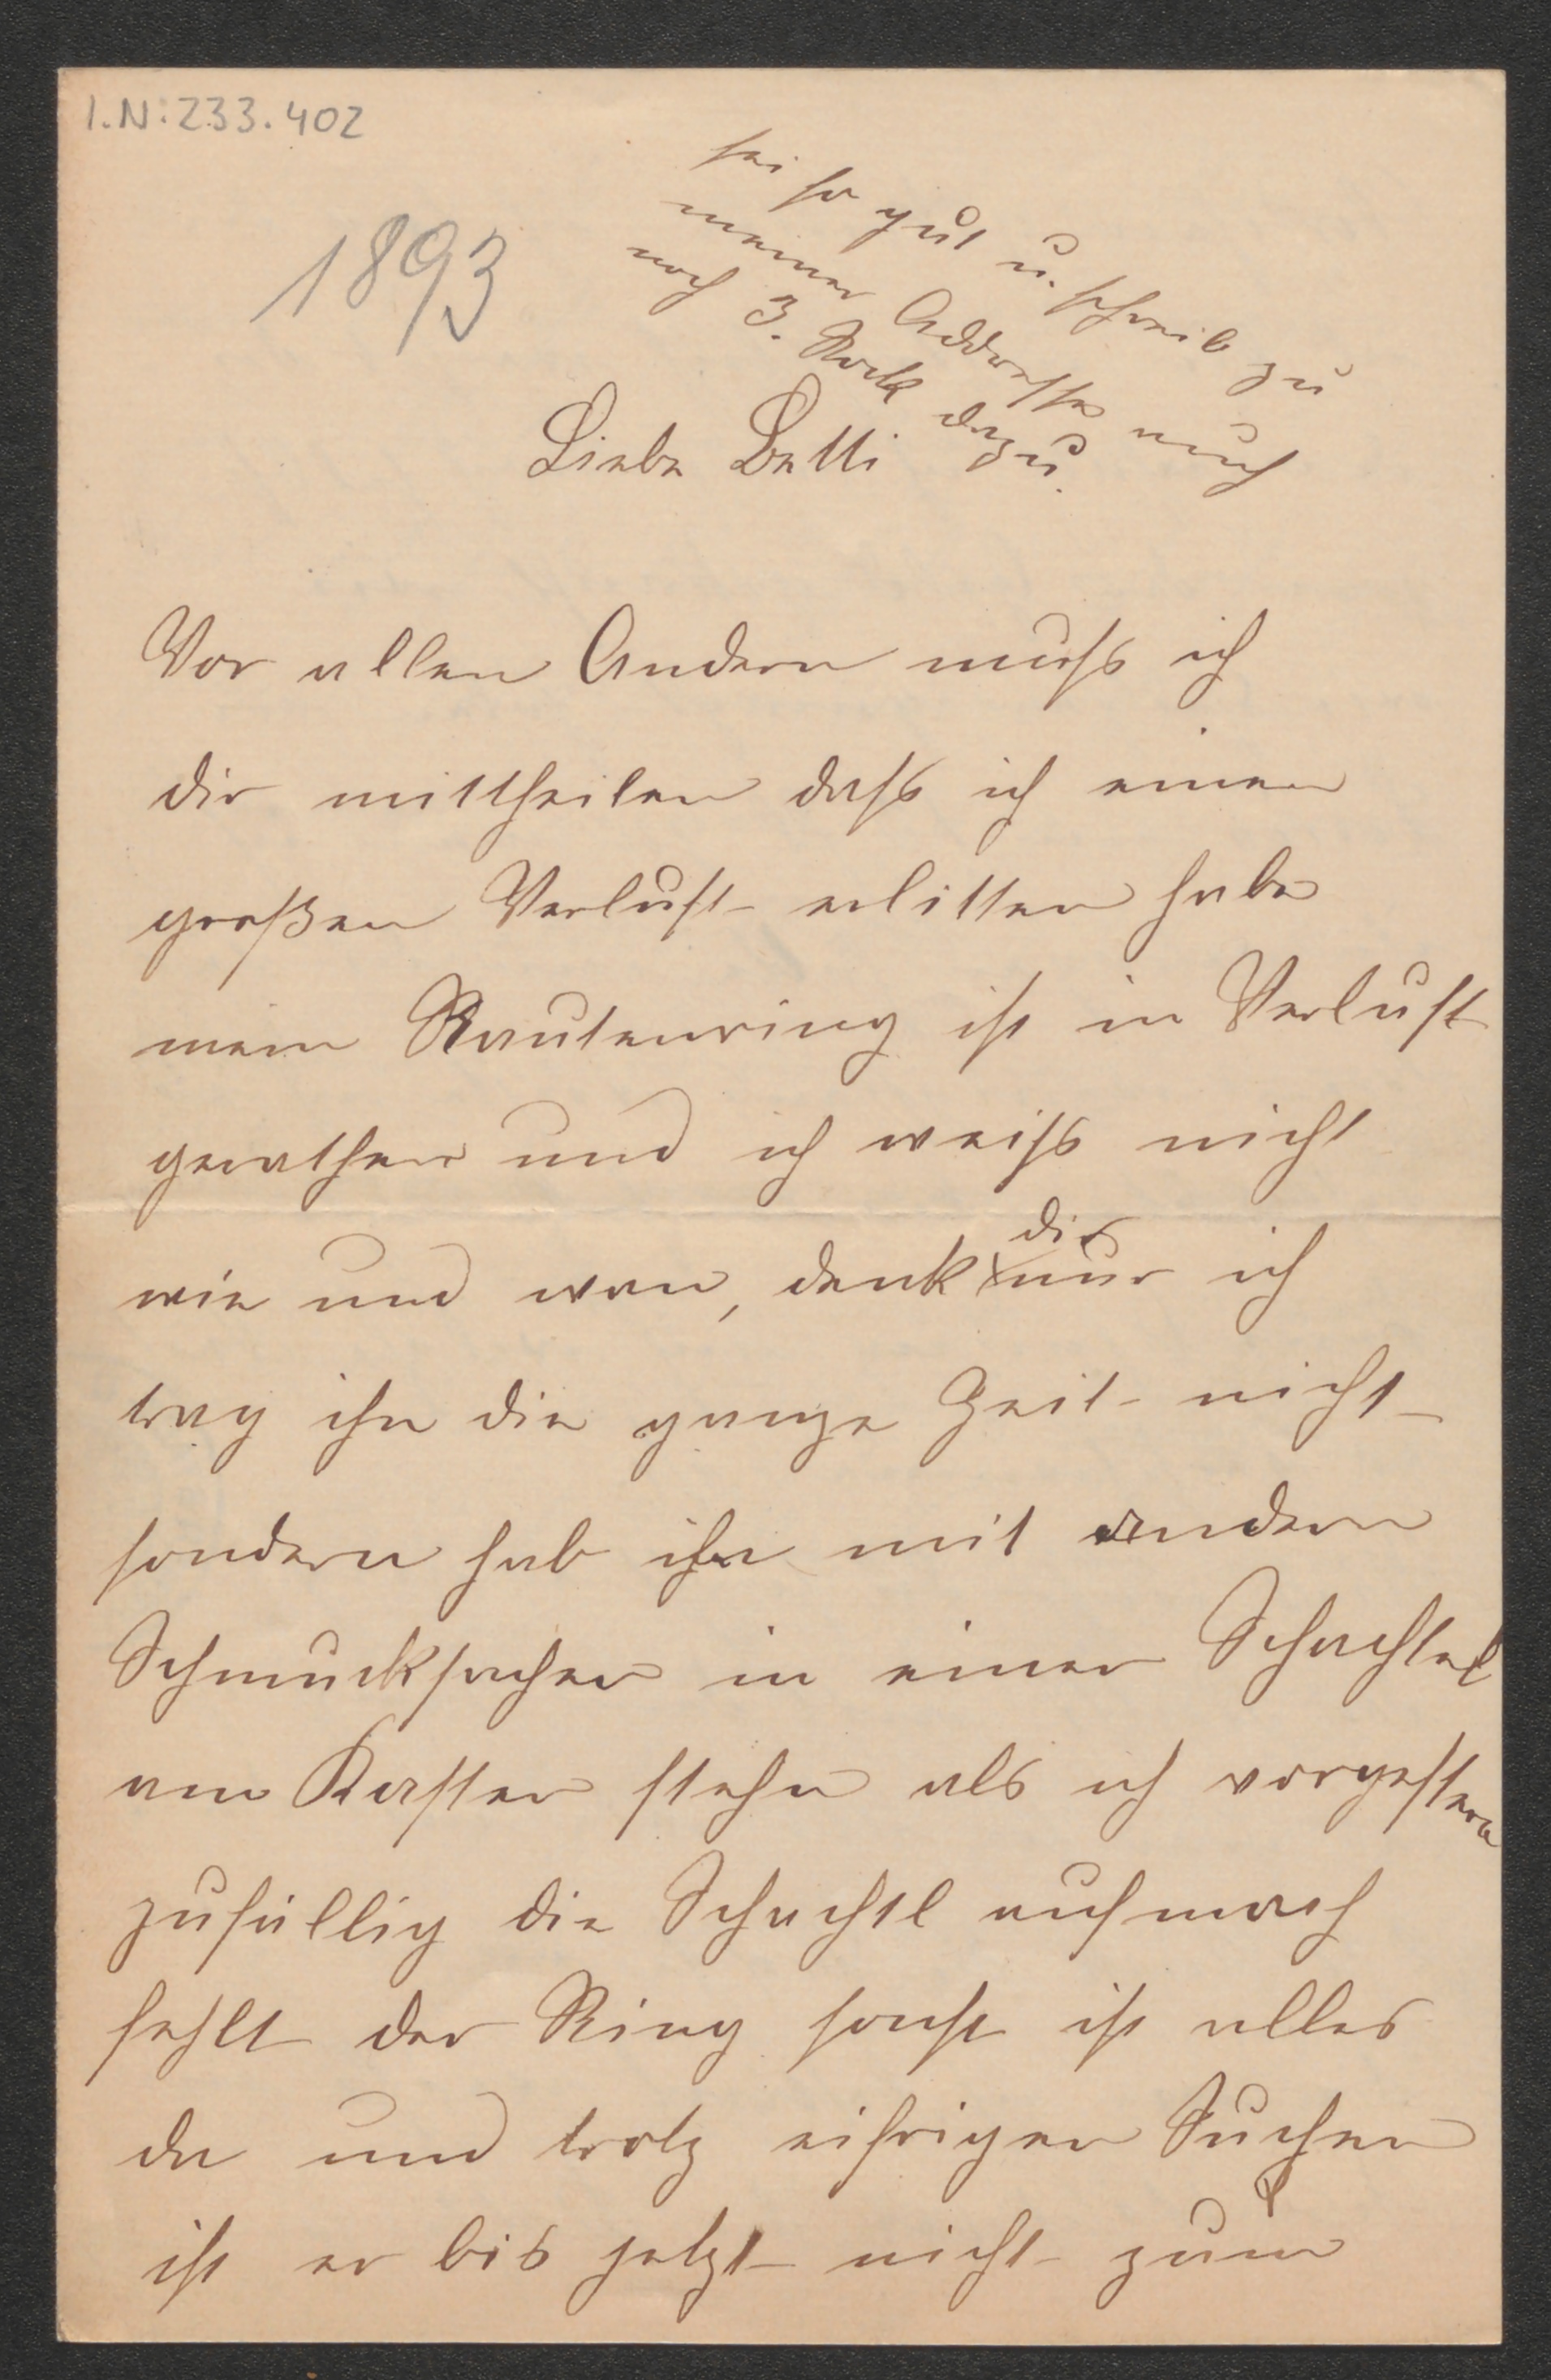 I.N: 233.402
1893
sei so gut u. schreib zu
meiner Addresse auch
noch 3. Stock dazu.
Liebe Betti
Vor allen Andern muſs ich
dir mittheilen daſs ich einen
großen Verlust erlitten habe
mein Rautenring ist in Verlust
gerathen und ich weiſs nicht
wie und wan, denk dir nur ich
trag ihn die ganze Zeit nicht
sondern hab ihn mit andern
Schmucksachen in einer Schachtel
am Kasten stehn als ich vorgestern
zufällig die Schachtl aufmach
fehlt der Ring sonst ist alles
da und trotz eifrigen Suchen
ist er bis jetzt nicht zum